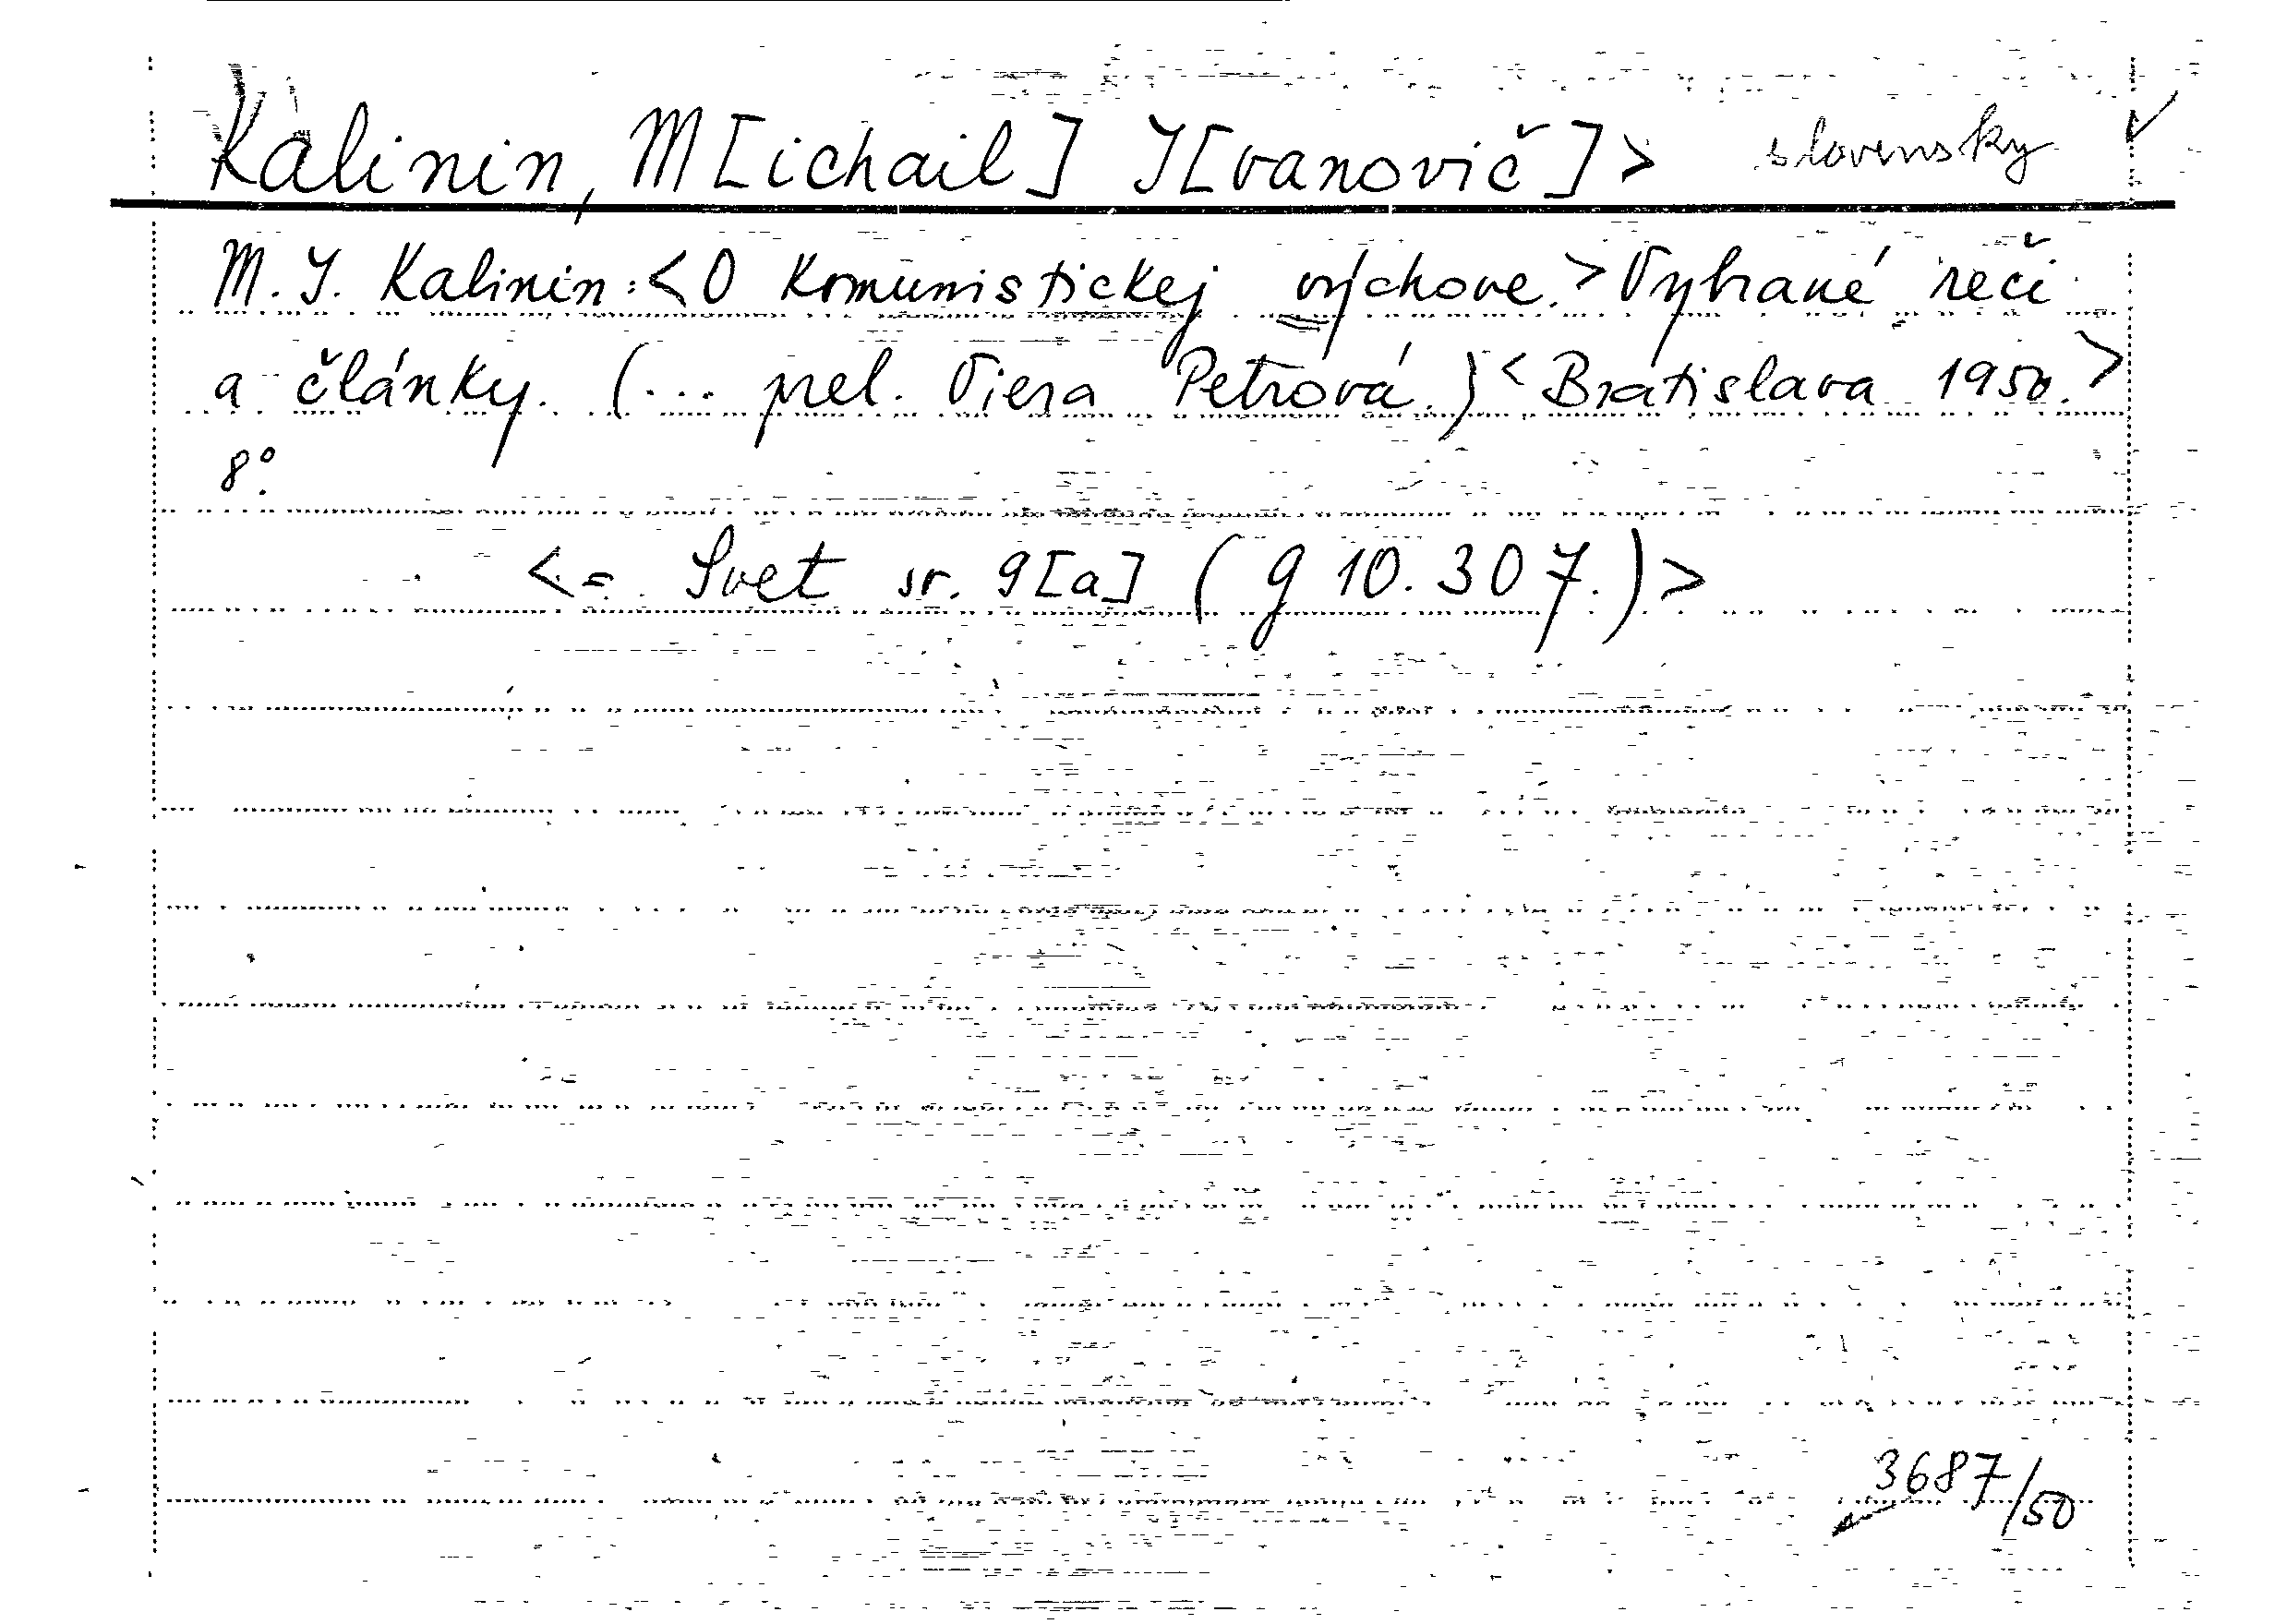 Kalinin, M[ichail] I[vanovič]> slovensky
M. I. Kalinin: <O komunistickej výchove.> Vybrané reči
a články. (... prel. Viera Petrová.) <Bratislava 1950.>
8°.
<= Svet sr. 9[a] (g 10.307.)>
3687/50